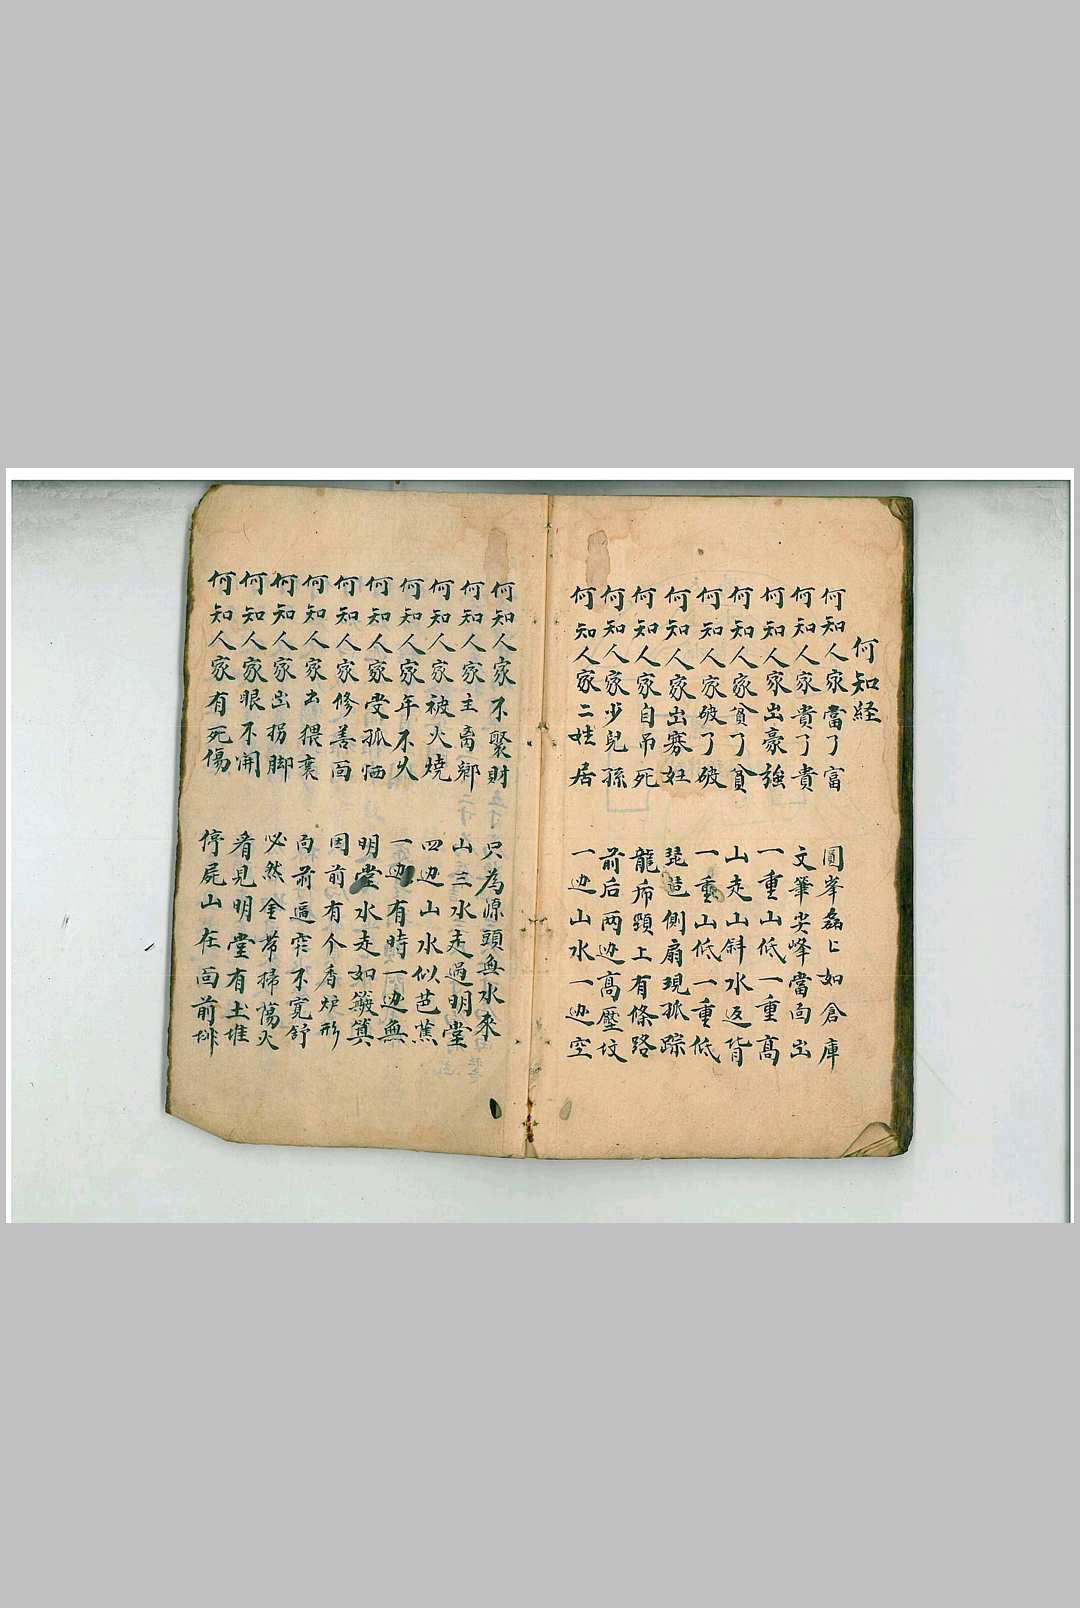 何知経
何知人家當了富 圓峯磊〻如倉庫
何知人家貴了貴 文筆尖峰當向出
何知人家出豪強 一重山低一重高
何知人家貧了貧 山走山斜水返背
何知人家破了破 一重山低一重低
何知人家出寡妊 琵琶側扇現孤踪
何知人家自吊死 龍帍頸上有條路
何知人家少兒孫 前后两边高壓坟
何知人家二姓居 一边山水一边空
何知人家不聚財 只為源頭無水來
何知人家主离鄉 山三水走過明堂
何知人家被火燒 四边山水似芭蕉
何知人家年不久 一边有時一边無
何知人家受孤恓 明堂水走如簸箕
何知人家修善 因前有个香炉形
何知人家出猥 向前逼窄不寛舒
何知人家出拐脚 必然金帯掃蕩火
何知人家眼不開 看見明堂有土堆
何知人家有死傷 停屍山在向前排